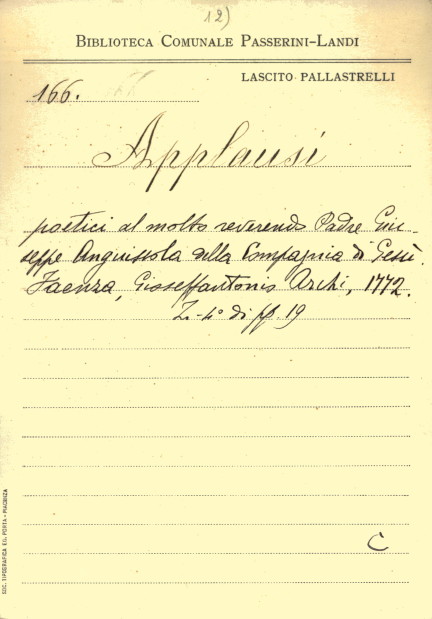 12)
BIBLIOTECA COMUNALE PASSERINI-LANDI
LASCITO PALLASTRELLI
166.
Applausi
poetici al molto reverendo Padre Giu-
seppe Anguissola della Compagnia di Gesù.
Faenza, Gioseffantonio Archi, 1772.
Z-4° di pp. 19
C
SOC. TIPOGRAFICA ED. PORTA - PIACENZA